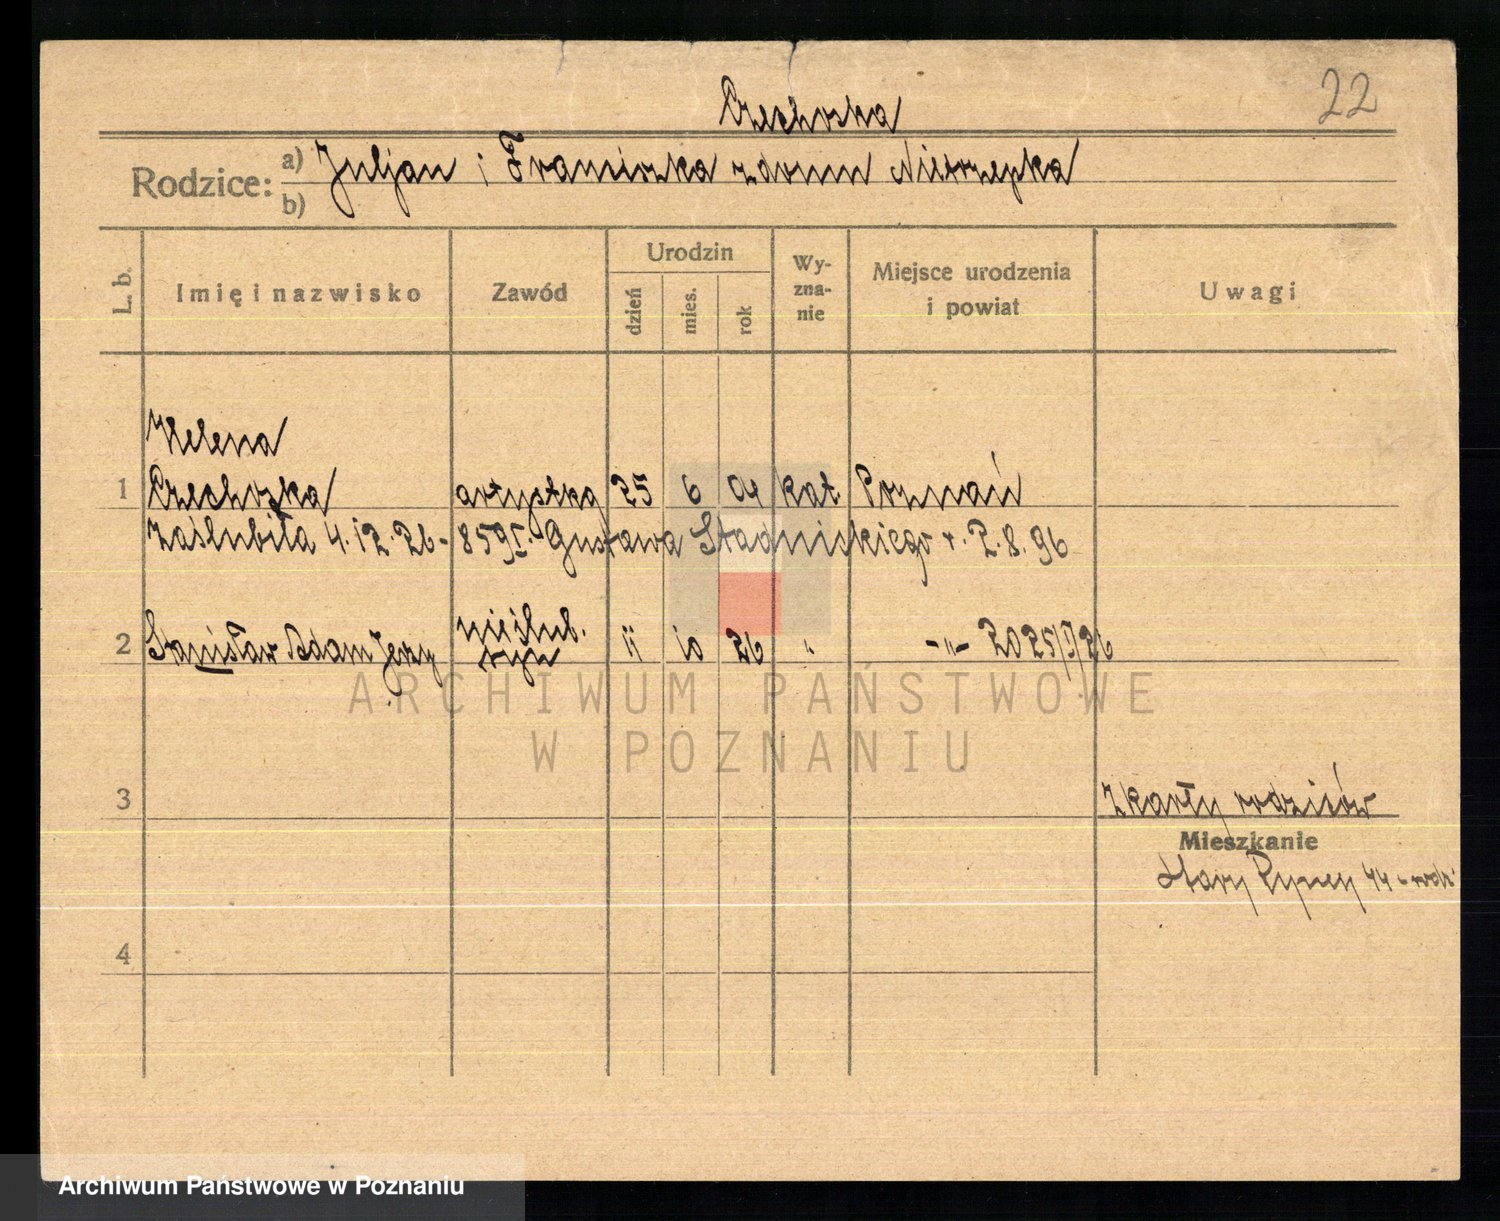 22
Czechoska
Rodzice: a) Juljan i Franciszka z domu Nietrzepka
b)
L. b. Imię i nazwisko Zawód Urodzin dzień mies. rok Wyznanie Miejsce urodzenia i powiat Uwagi
Helena
1 Czechoska artystka 25 6 04 kat. Poznań
Zaślubiła 4.12.26 - 859I. Gustawa Stadnickiego r. 2.8.96
nieślub.
2 Stanisław Adam Jerzy syn 11 10 26 " -"- 2025/I/26
3
z karty rodziców
Mieszkanie
Stary Rynek 44
4
ARCHIWUM PAŃSTWOWE
W POZNANIU
Archiwum Państwowe w Poznaniu